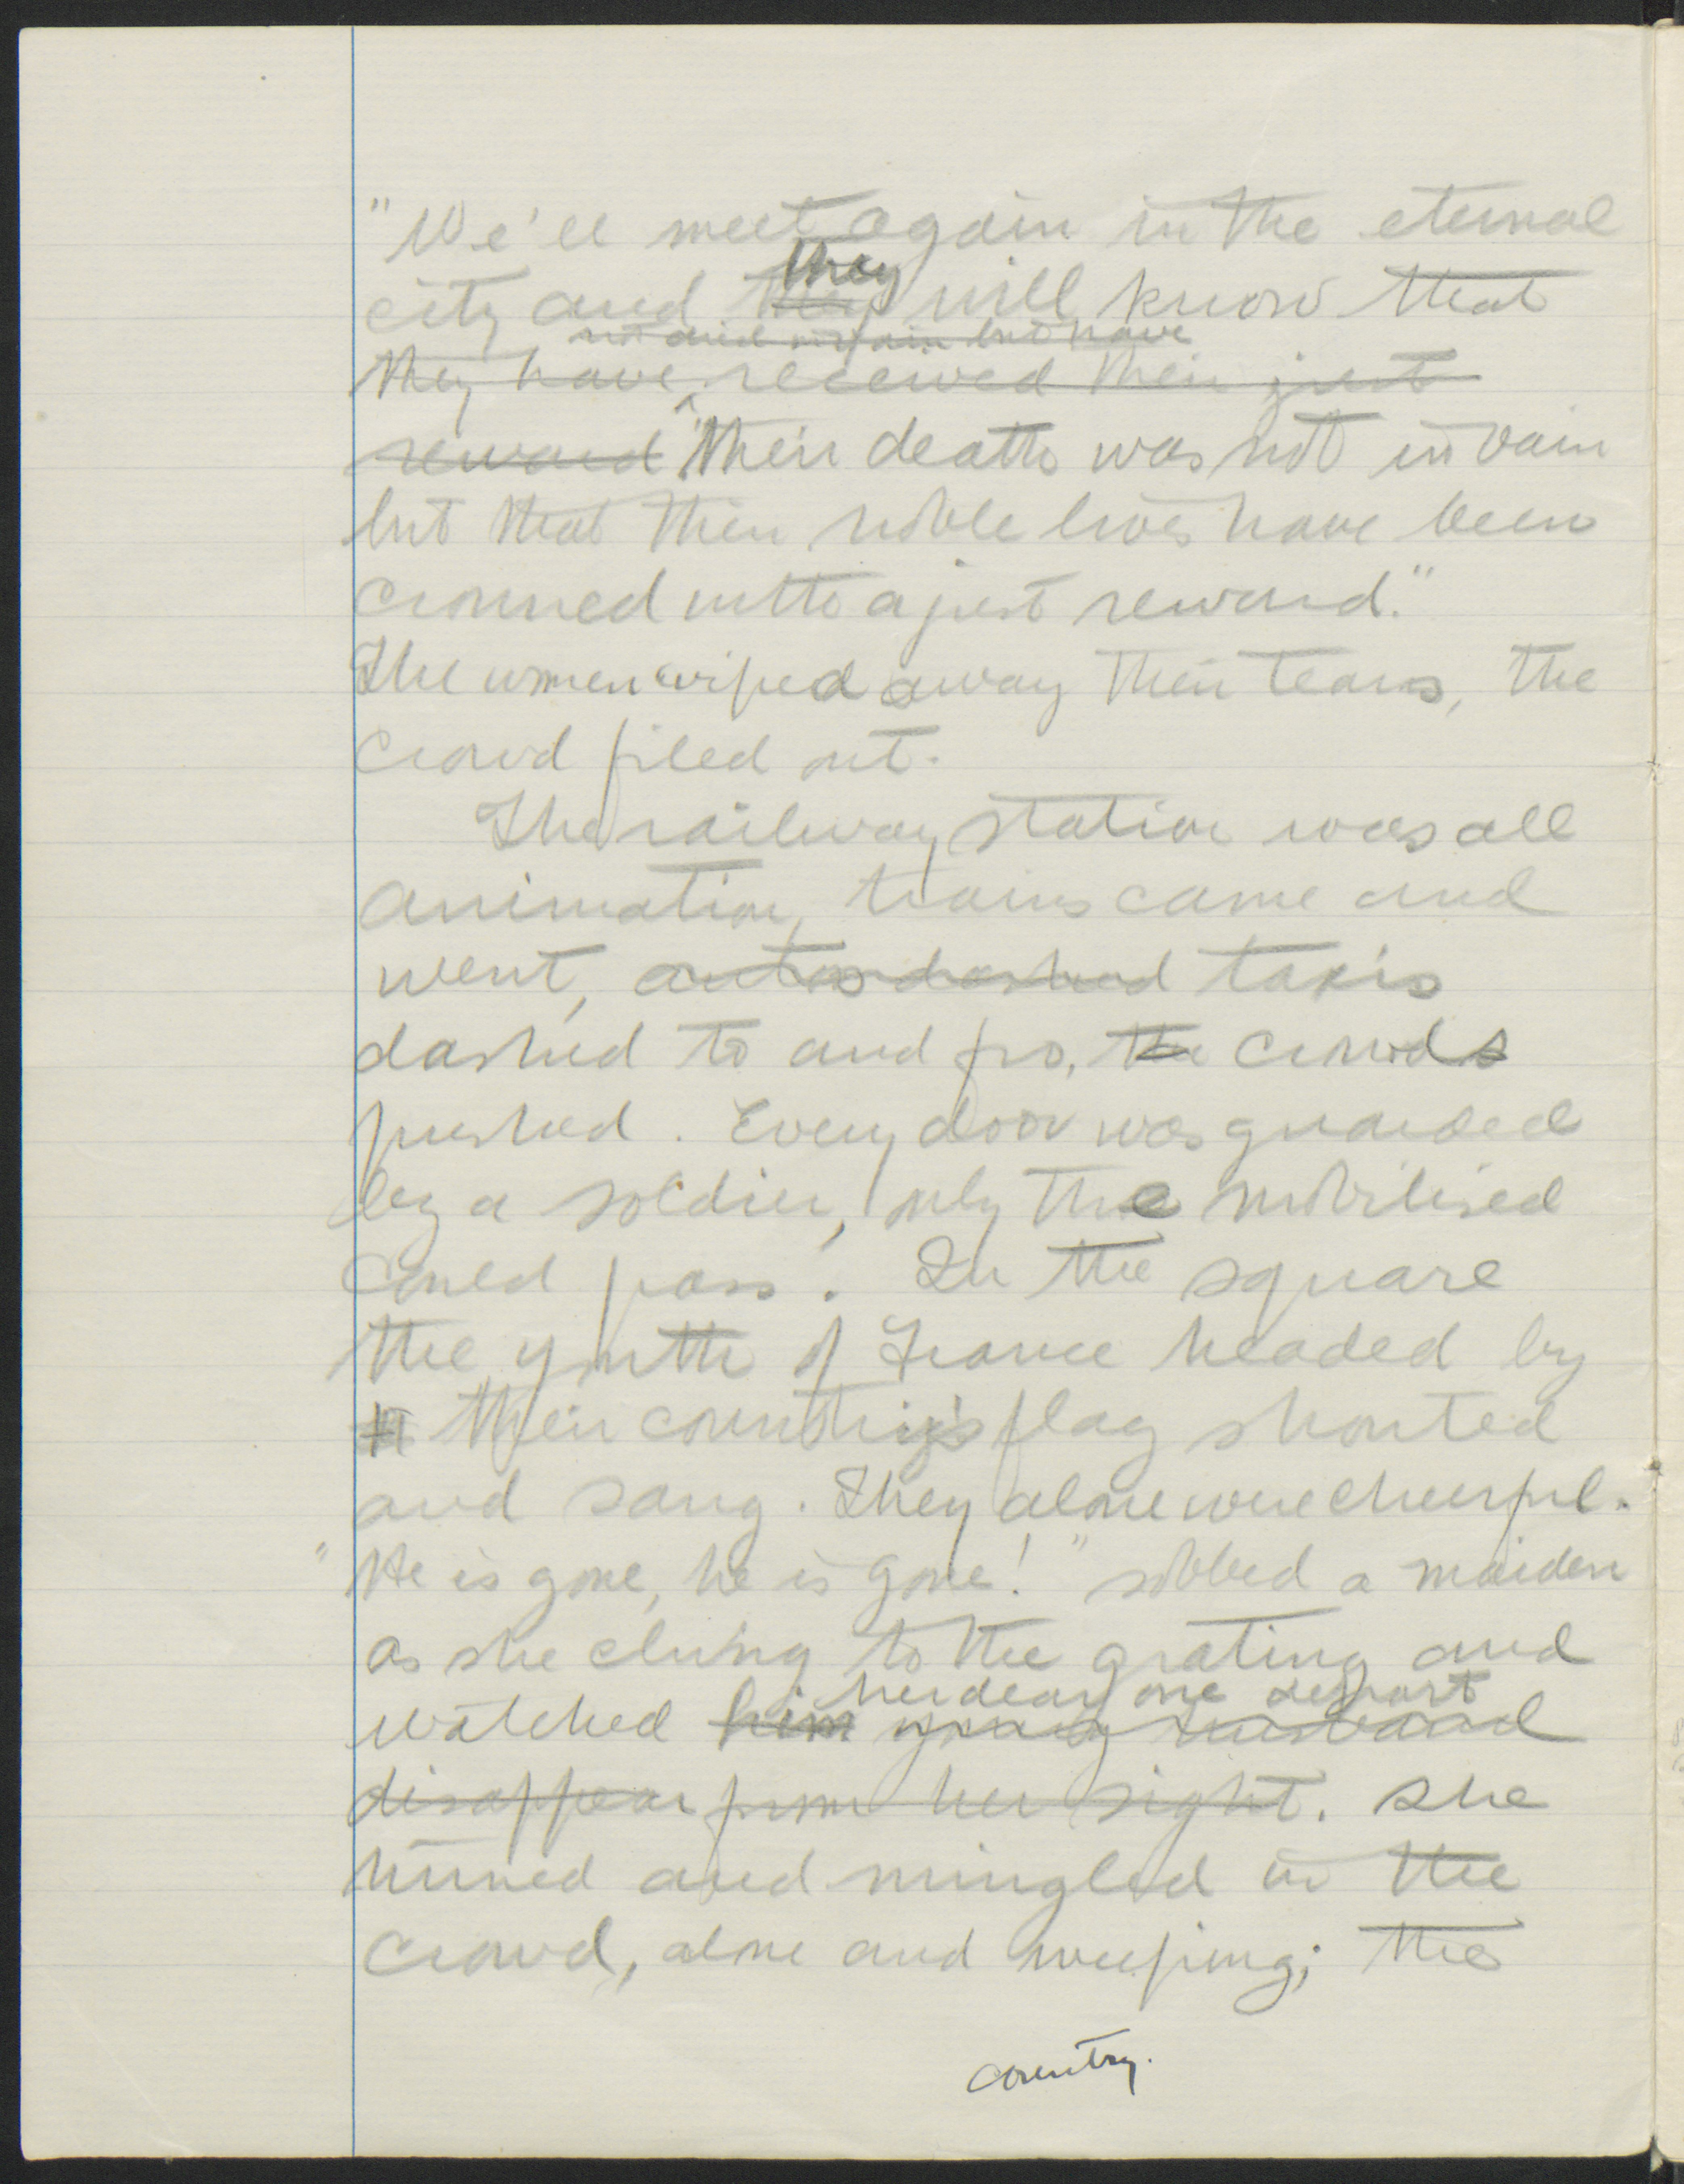 "We'll meet again in the eternal
they
city and they will know that
not died in vain but have
they have received their just
reward "their death was not in vain
but that their noble lives have been
crowned with a just reward."
The women wiped away their tears, the
crowd filed out.
The railway station was all
animation, trains came and
went, autos dashed taxis
dashed to and fro, the crowds
pushed. Every door was guarded
by a soldier, only the mobilised
could pass. In the square
the youth of France headed by
their country's flag shouted
and sang. They alone were cheerful.
"He is gone, he is gone!" sobbed a maiden
as she clung to the grating and
her dear one depart
watched him young husband
disappear from her sight. She
turned and mingled in the
crowd, alone and weeping; the
country.